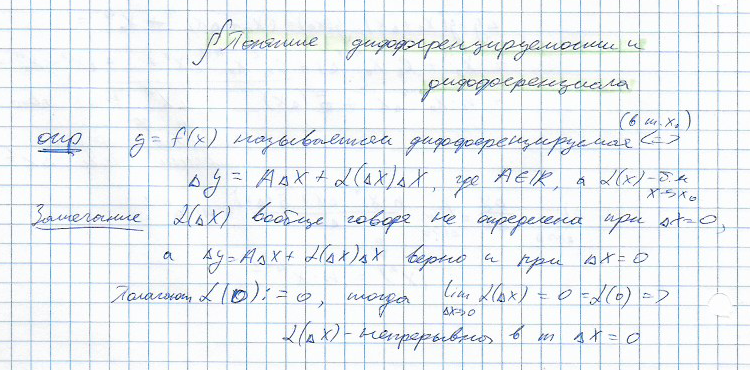 ∮ Понятие дифференцируемости и
дифференциала
опр y = f(x) называется дифференцируемая (в т. x₀) <=>
Δy = AΔx + α(Δx)Δx, где A∈ℝ, а α(x) – б.м x→x₀
Замечание α(Δx) вообще говоря не определена при Δx=0,
а Δy = AΔx + α(Δx)Δx верно и при Δx = 0
Полагают α(0) := 0, тогда lim Δx→0 α(Δx) = 0 = α(0) =>
α(Δx) – непрерывна в т Δx = 0